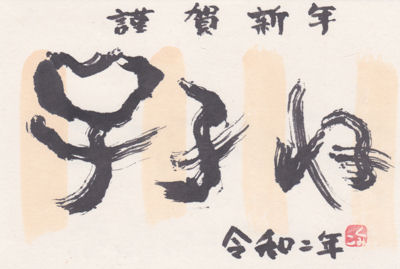 謹賀新年
子子ね
令和二年